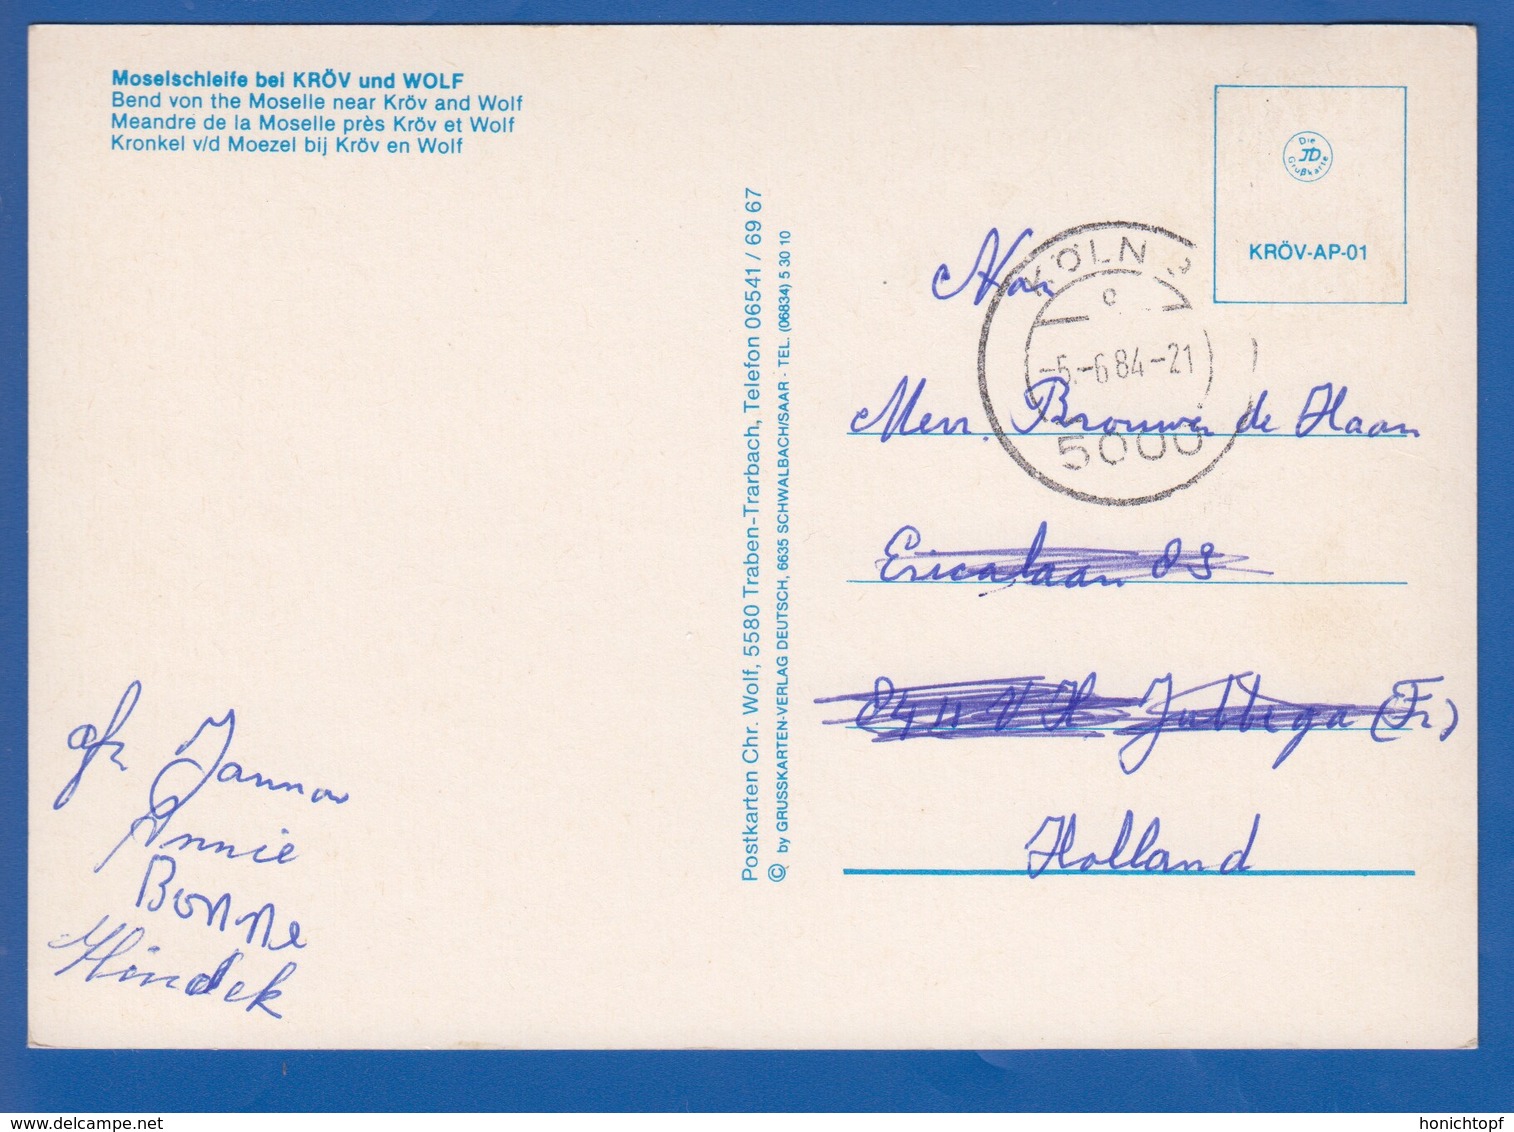 Moselschleife bei KRÖV und WOLF
Bend von the Moselle near Kröv and Wolf
Meandre de la Moselle près Kröv et Wolf
Kronkel v/d Moezel bij Kröv en Wolf
Postkarten Chr. Wolf, 5580 Traben-Trarbach, Telefon 06541 / 69 67
© by GRUSSKARTEN-VERLAG DEUTSCH, 6635 SCHWALBACH/SAAR · TEL. (06834) 5 30 10
Die
JD
Grußkarte
KRÖV-AP-01
KÖLN
c
-5.-6 84-21
5000
Aan
Brouwer de Haan
Ericalaan
Jubbega (Fr)
Holland
Janna
Annie
Bonne
Hindek
delcampe.net
honichtopf